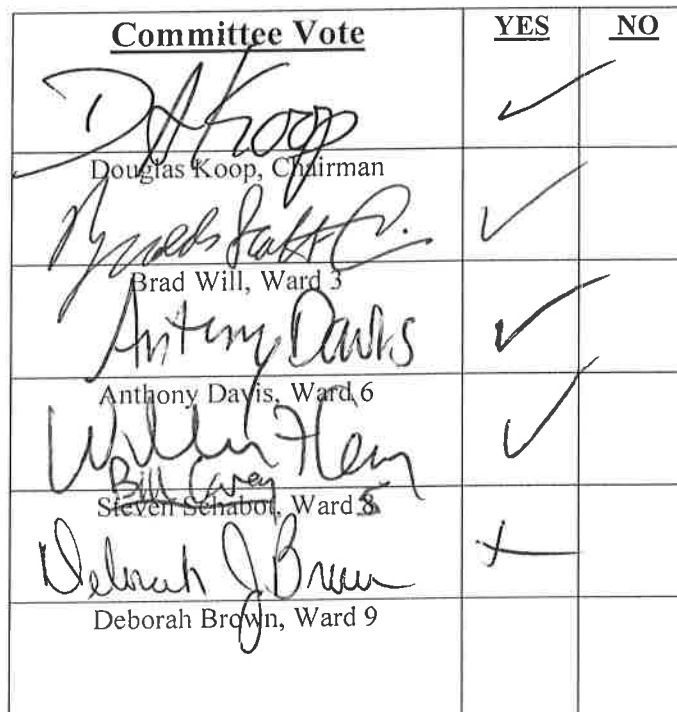 Committee Vote YES NO
D Koop
Douglas Koop, Chairman
Brad Will, Ward 3
Anthony Davis
Anthony Davis, Ward 6
Bill Carey
Steven Schabot, Ward
Deborah J. Brown
Deborah Brown, Ward 9